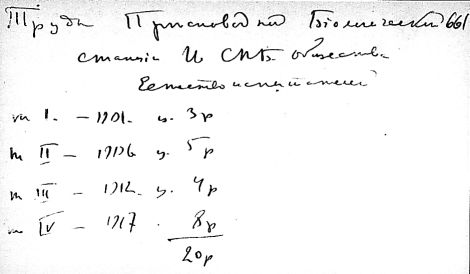 Труды Пресноводной Биологической 661
станціи И СПБ общества
Естествоиспытателей
т I. – 1901. ц. 3р
т II – 1906 ц. 5р
т III – 1912. ц. 4р
т IV – 1917 . 8р
20р